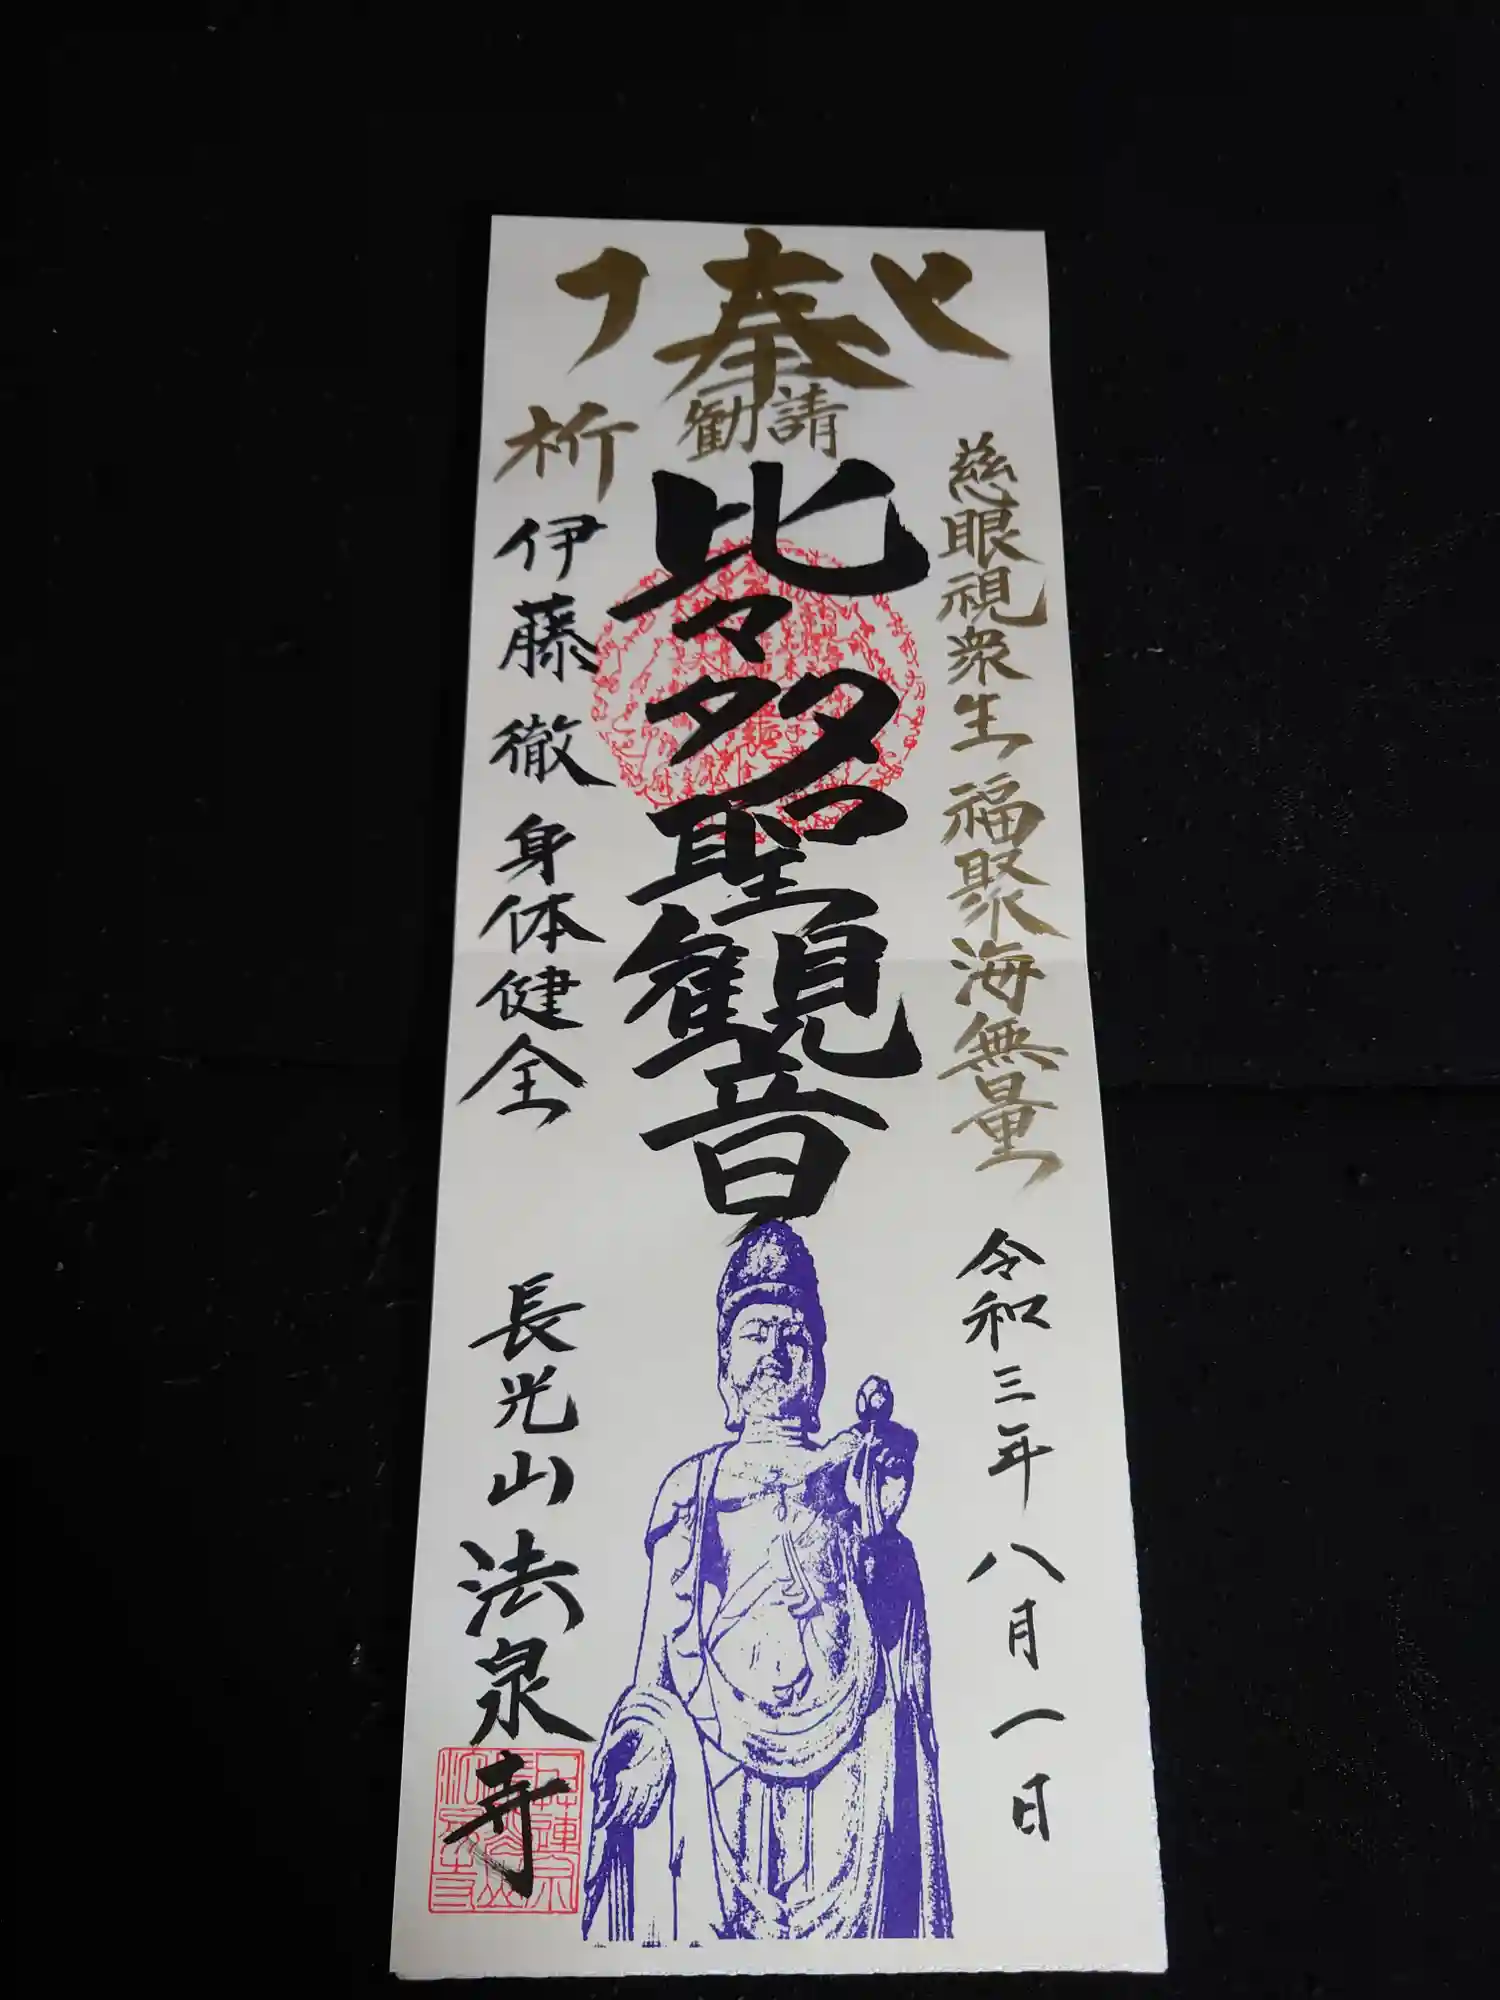 奉
勧請
慈眼視衆生 福聚海無量
令和三年八月一日
比々多聖観音
祈
伊藤 徹 身体健全
長光山 法泉寺